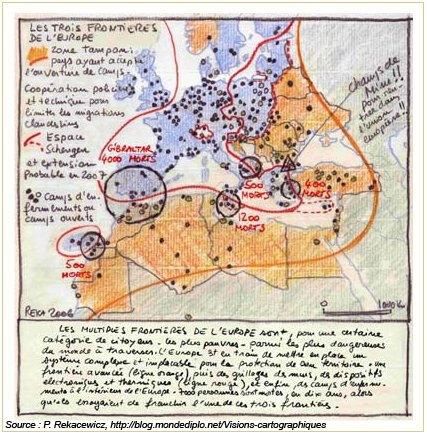 LES TROIS FRONTIÈRES
DE L'EUROPE
Zone tampon:
pays ayant accepté
l'ouverture de camps.
Coopération policière
et technique pour
limiter les migrations
clandestines
Espace
Schengen
et extension
probable en 2007
Camps d'en-
fermements ou
camps ouverts
GIBRALTAR
4000 MORTS
500
MORTS
500
MORTS
1200
MORTS
400
MORTS
Champs de
Mines!!
pour
dans
l'union!!
REKA 2006
1000 K
LES MULTIPLES FRONTIÈRES DE L'EUROPE sont, pour une certaine
catégorie de citoyens - les plus pauvres - parmi les plus dangereuses
du monde à traverser. L'Europe est en train de mettre en place un
système complexe et implacable pour la protection de son territoire - une
frontière avancée (ligne orange), puis des grillages des murs, des dispositifs
électroniques et thermiques (ligne rouge), et enfin, des camps d'enferme-
ments à l'intérieur de l'Europe - 7000 personnes sont mortes, en dix ans, alors
qu'ils essayaient de franchir l'une de ces trois frontières.
Source : P. Rekacewicz, http://blog.mondediplo.net/Visions-cartographiques